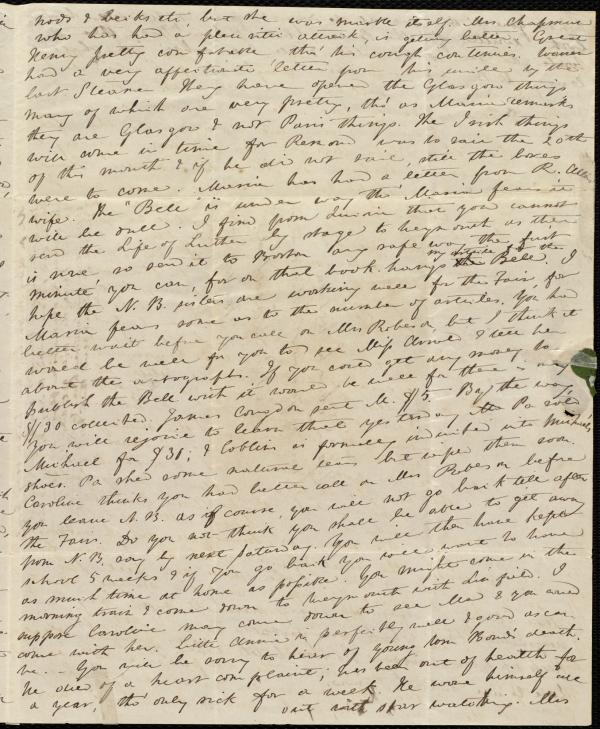 nods & becks etc, but she was mirth itself. Mrs Chapman
who has had a pleuritic attack, is getting better. Great
Henry pretty comfortable tho' his cough continues. Maria
had a very affectionate letter from his uncle by the
last Steamer. They have opened the Glasgow things
many of which are very pretty, tho' as Maria remarks
they are Glasgow & not Paris things. The Irish things
will come in time for Remond was to sail the 20th
of this month & if he did not sail, still the boxes
were to come. Maria has had a letter from R. Allen's
wife. The "Bell" is under way tho' Maria fears it
will be dull. I find from Louisa that you cannot
send the Life of Luther by stage to Weymouth as there
is none so send it to Boston any safe way the first
minute you can, for on that book hangs my article for the Bell. I
hope the N. B. sisters are working well for the Fair, for
Maria fears some as to the number of articles. You had
better wait before you call on Mrs Robeson, but I think it
would be well for you to see Miss Arnold & tell her
about the autographs. If you could get any money to
publish the Bell with it would be well for there is only
$130 collected. James Congdon sent M. $5. By the way,
you will rejoice to learn that yesterday Mr Pa sold
Michael for $31; & Goblin is formally inducted into Michael's
shoes. Pa shed some natural tears but wiped them soon.
Caroline thinks you had better call on Mrs Robeson before
you leave N. B. as of course, you will not go back till after
the Fair. Do you not think you shall be able to get away
from N. B. say by next Saturday. You will then have kept
school 5 weeks & if you go back you will want to have
as much time at home as possible. You might come in the
morning train & come down to Weymouth with Linfield. I
suppose Caroline may come down to see Ma & you and
come with her. Little Annie is perfectly well & good as can
be. - You will be sorry to hear of young Tom Bond's death.
He died of a heart complaint; has been out of health for
a year, tho' only sick for a week. He wore himself all
out with star watching. Mrs